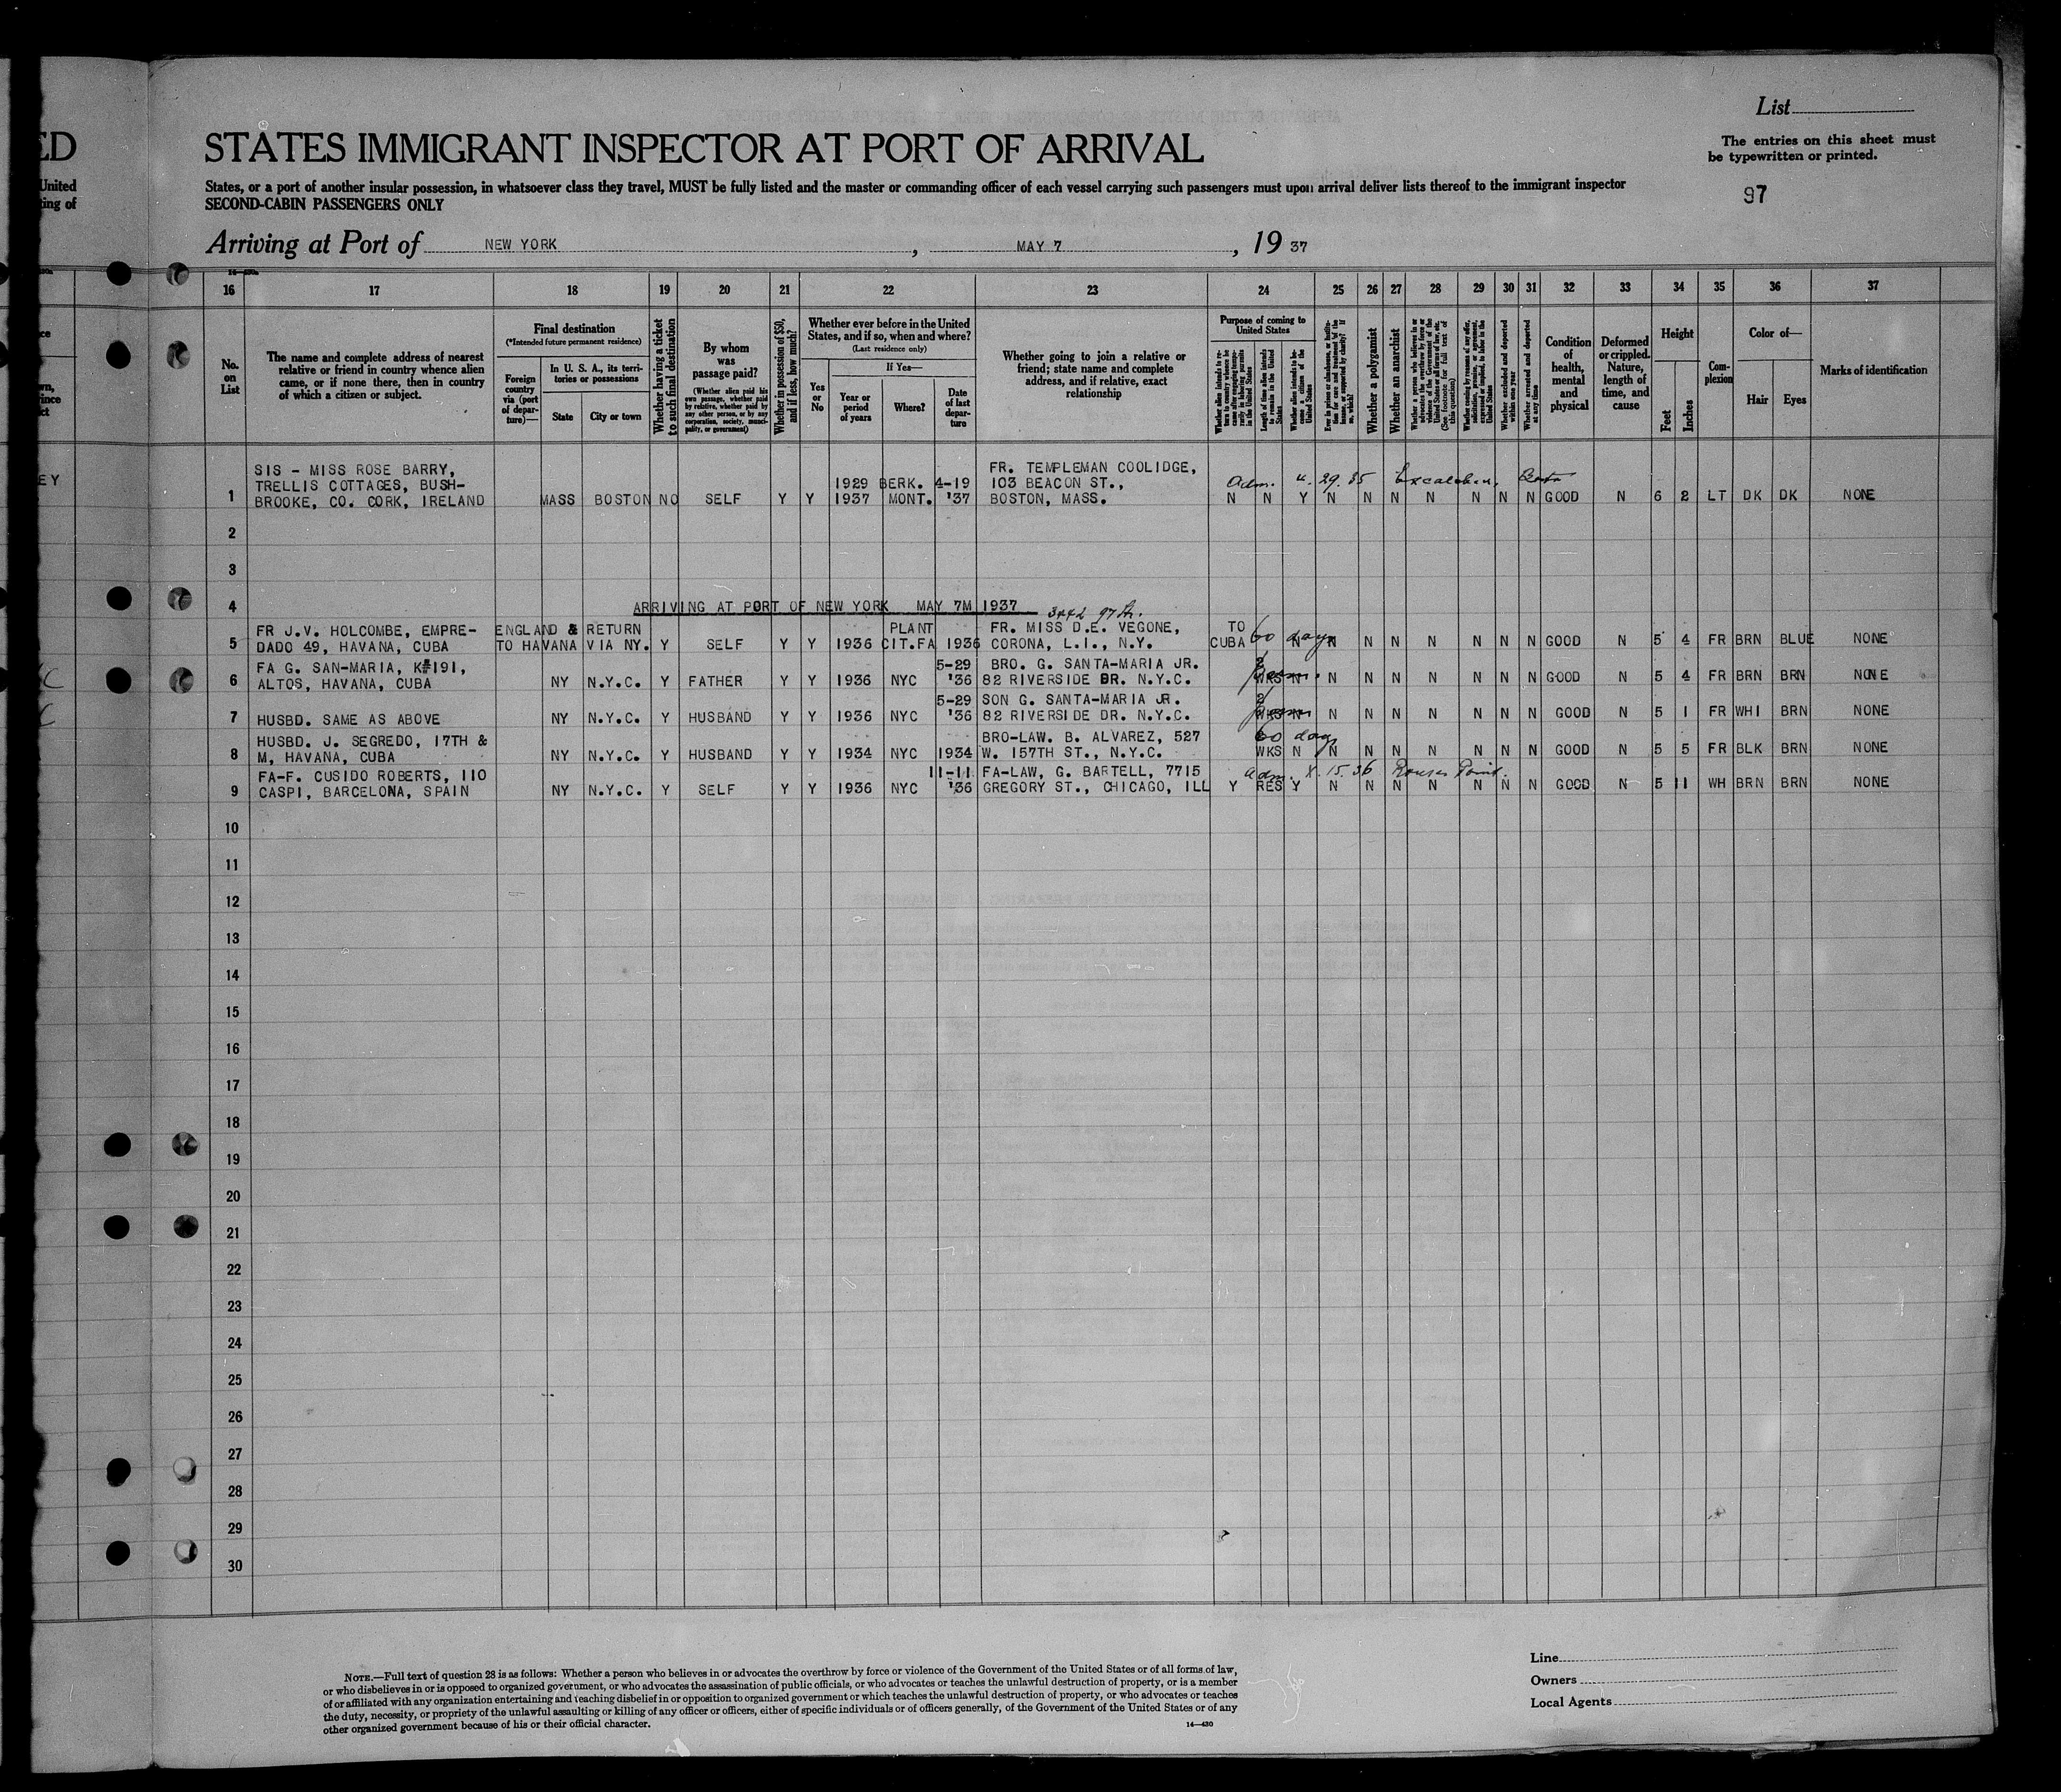 List
STATES IMMIGRANT INSPECTOR AT PORT OF ARRIVAL
The entries on this sheet must
be typewritten or printed.
States, or a port of another insular possession, in whatsoever class they travel, MUST be fully listed and the master or commanding officer of each vessel carrying such passengers must upon arrival deliver lists thereof to the immigrant inspector
SECOND-CABIN PASSENGERS ONLY
97
Arriving at Port of NEW YORK , MAY 7 , 19 37
ED
United
ing of
16 17 18 19 20 21 22 23 24 25 26 27 28 29 30 31 32 33 34 35 36 37
No. on List
The name and complete address of nearest relative or friend in country whence alien came, or if none there, then in country of which a citizen or subject.
Final destination
(*Intended future permanent residence)
Foreign country via (port of departure)—
In U. S. A., its territories or possessions
State
City or town
Whether having a ticket to such final destination
By whom was passage paid?
(Whether alien paid his own passage, whether paid by relative, whether paid by any other person, or by any corporation, society, municipality, or government)
Whether in possession of $50, and if less, how much?
Whether ever before in the United States, and if so, when and where?
(Last residence only)
Yes or No
If Yes—
Year or period of years
Where?
Date of last departure
Whether going to join a relative or friend; state name and complete address, and if relative, exact relationship
Purpose of coming to United States
Length of time alien intends to remain in the United States
Whether alien intends to become a citizen of the United States
Whether a polygamist
Whether an anarchist
Whether excluded and deported within one year
Whether arrested and deported at any time
Condition of health, mental and physical
Deformed or crippled. Nature, length of time, and cause
Height
Feet
Inches
Complexion
Color of—
Hair
Eyes
Marks of identification
SIS - MISS ROSE BARRY, FR. TEMPLEMAN COOLIDGE,
TRELLIS COTTAGES, BUSH- 1929 BERK. 4-19 103 BEACON ST., Adm. 29. 35 Excalibur, Boston
1 BROOKE, CO. CORK, IRELAND MASS BOSTON NO SELF Y Y 1937 MONT. '37 BOSTON, MASS. N N Y N N N N N N N GOOD N 6 2 LT DK DK NONE
2
3
4 ARRIVING AT PORT OF NEW YORK MAY 7M 1937
3442 97 St.
FR J.V. HOLCOMBE, EMPRE- ENGLAND & RETURN PLANT FR. MISS D.E. VEGONE, TO
5 DADO 49, HAVANA, CUBA TO HAVANA VIA NY. Y SELF Y Y 1936 CIT.FA 1936 CORONA, L.I., N.Y. CUBA 60 days N N N N N N N N GOOD N 5 4 FR BRN BLUE NONE
FA G. SAN-MARIA, K#191, 5-29 BRO. G. SANTA-MARIA JR. 2
6 ALTOS, HAVANA, CUBA NY N.Y.C. Y FATHER Y Y 1936 NYC '36 82 RIVERSIDE DR. N.Y.C. WKS N N N N N N N N GOOD N 5 4 FR BRN BRN NONE
5-29 SON G. SANTA-MARIA JR. 2
7 HUSBD. SAME AS ABOVE NY N.Y.C. Y HUSBAND Y Y 1936 NYC '36 82 RIVERSIDE DR. N.Y.C. WKS N N N N N N N N GOOD N 5 1 FR WHI BRN NONE
HUSBD. J. SEGREDO, 17TH & BRO-LAW. B. ALVAREZ, 527 60 days
8 M, HAVANA, CUBA NY N.Y.C. Y HUSBAND Y Y 1934 NYC 1934 W. 157TH ST., N.Y.C. WKS N N N N N N N N GOOD N 5 5 FR BLK BRN NONE
FA-F. CUSIDO ROBERTS, 110 11-11 FA-LAW, G. BARTELL, 7715 Adm. X. 15. 36 Rouses Point.
9 CASPI, BARCELONA, SPAIN NY N.Y.C. Y SELF Y Y 1936 NYC '36 GREGORY ST., CHICAGO, ILL Y RES Y N N N N N N N GOOD N 5 11 WH BRN BRN NONE
10
11
12
13
14
15
16
17
18
19
20
21
22
23
24
25
26
27
28
29
30
NOTE.—Full text of question 28 is as follows: Whether a person who believes in or advocates the overthrow by force or violence of the Government of the United States or of all forms of law,
or who disbelieves in or is opposed to organized government, or who advocates the assassination of public officials, or who advocates or teaches the unlawful destruction of property, or is a member
of or affiliated with any organization entertaining and teaching disbelief in or opposition to organized government or which teaches the unlawful destruction of property, or who advocates or teaches
the duty, necessity, or propriety of the unlawful assaulting or killing of any officer or officers, either of specific individuals or of officers generally, of the Government of the United States or of any
other organized government because of his or their official character.
14—430
Line
Owners
Local Agents